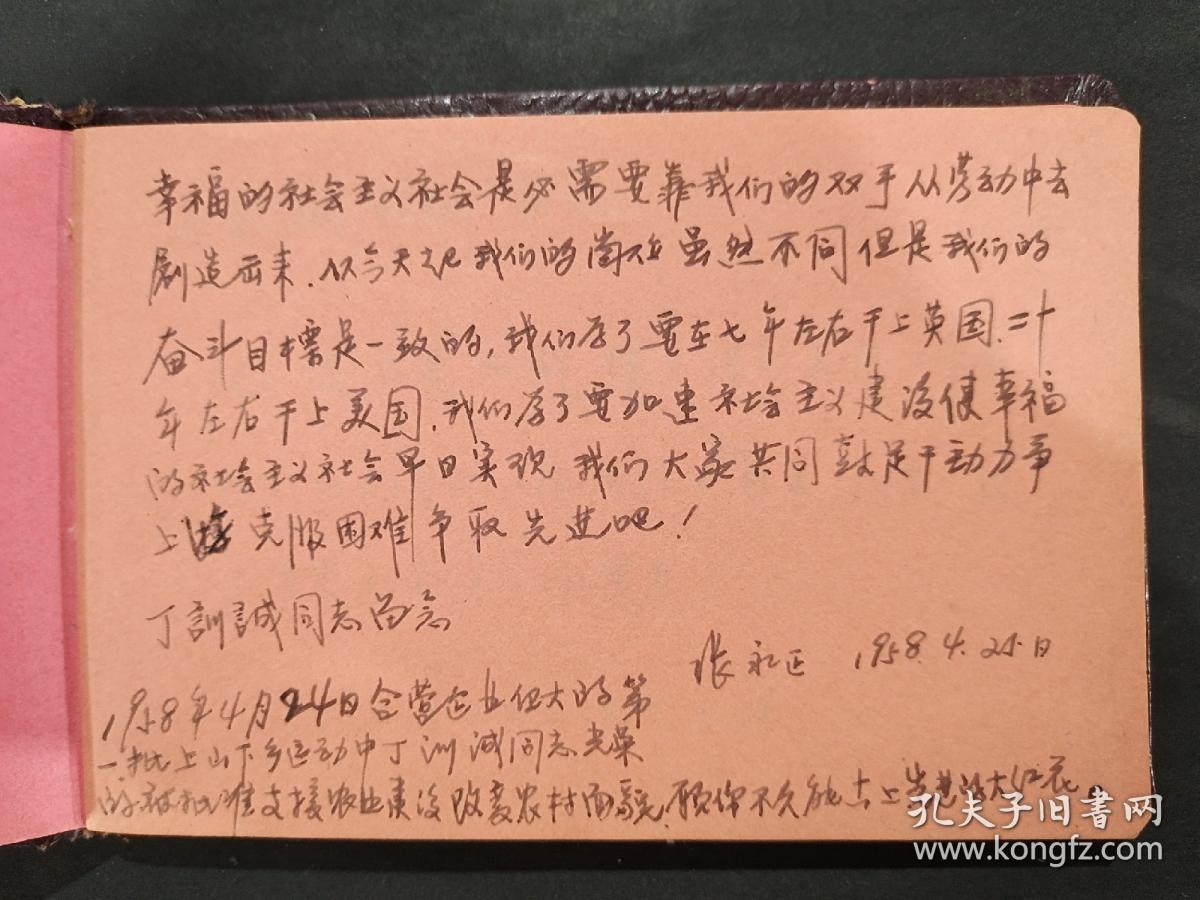 幸福的社会主义社会是必需要靠我们的双手从劳动中去
创造出来.从今天起我们的岗位虽然不同但是我们的
奋斗目标是一致的,我们为了要在七年左右干上英国.二十
年左右干上美国.我们为了要加速社会主义建设使幸福
的社会主义社会早日实现 我们大家共同鼓足干动力争
上 克服困难争取先进吧!
丁訓誠同志留念
张永正 1958.4.25.日
1958年4月24日合营企业伟大的第
一批上山下乡运动中丁训诚同志光荣
的被批准支援农业建设改变农村面貌.愿你不久能 上先进的大红花。
孔夫子旧书网
www.kongfz.com